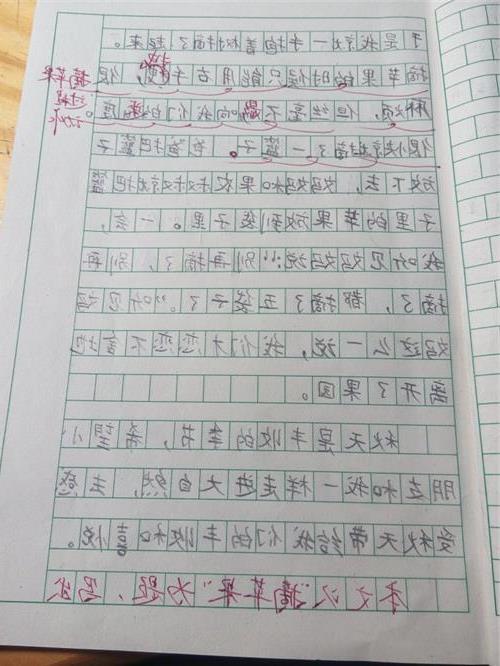 于是我就一手抱着树摘了起来。
摘苹果的时候只能用右手，很
麻烦，但丝毫不影响我们的速度。
很快就摘了一篮子。我把篮子
放下去，妈妈和果农叔叔把篮
子里的苹果放到袋子里。一会，
我听见妈妈说：“别再摘了，别再
摘了，都摘了五袋子了。”听见妈
妈这么一说，我们才恋恋不舍地
离开了果园。
秋天是丰收的季节，希望小
朋友和我一样走进大自然，去感
受秋天带给我们的丰收和喜悦。
本文以“摘苹果”为题，
摘苹果
过程